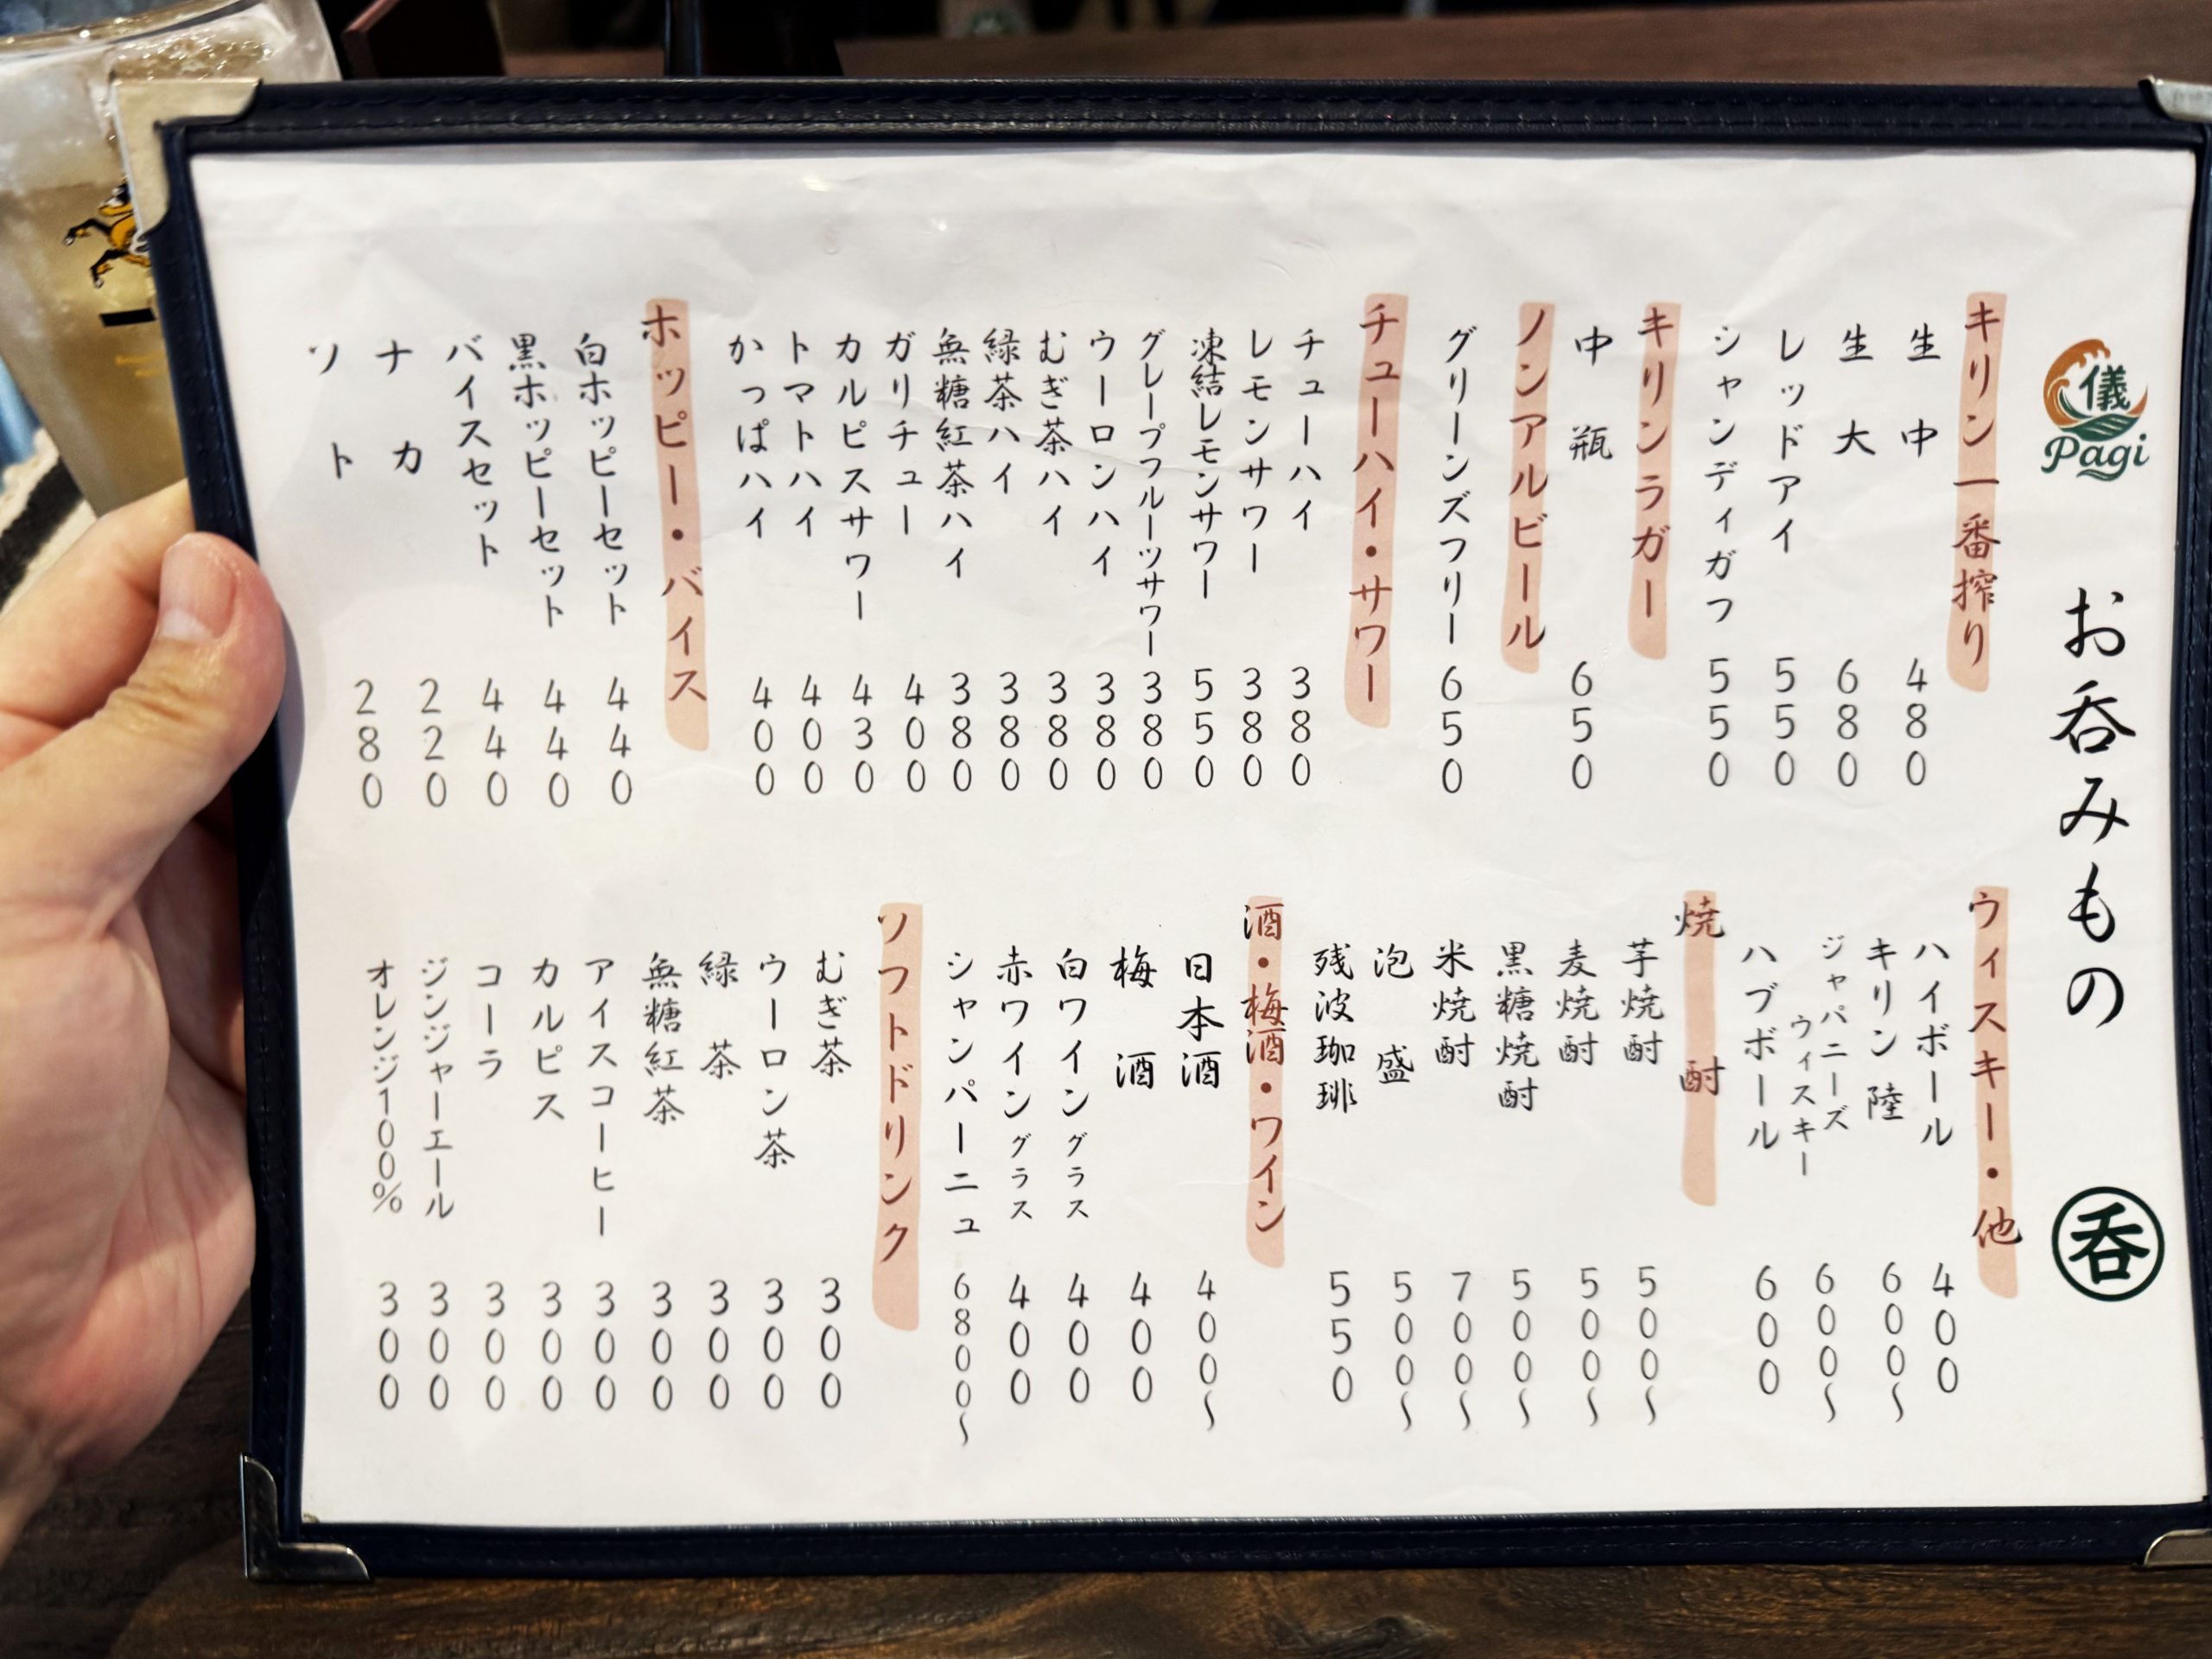 儀
Pagi
お呑みもの
呑
キリン一番搾り
生中 480
生大 680
レッドアイ 550
シャンディガフ 550
キリンラガー
中瓶 650
ノンアルビール
グリーンズフリー 650
チューハイ・サワー
チューハイ 380
レモンサワー 380
凍結レモンサワー 550
グレープフルーツサワー 380
ウーロンハイ 380
むぎ茶ハイ 380
緑茶ハイ 380
無糖紅茶ハイ 380
ガリチュー 400
カルピスサワー 430
トマトハイ 400
かっぱハイ 400
ホッピー・バイス
白ホッピーセット 440
黒ホッピーセット 440
バイスセット 440
ナカ 220
ソト 280
ウィスキー・他
ハイボール 400
キリン 陸 600〜
ジャパニーズ
ウィスキー 600〜
ハブボール 600
焼酎
芋焼酎 500〜
麦焼酎 500〜
黒糖焼酎 500〜
米焼酎 700〜
泡盛 500〜
残波珈琲 550
酒・梅酒・ワイン
日本酒 400〜
梅酒 400
白ワイングラス 400
赤ワイングラス 400
シャンパーニュ 6800〜
ソフトドリンク
むぎ茶 300
ウーロン茶 300
緑茶 300
無糖紅茶 300
アイスコーヒー 300
カルピス 300
コーラ 300
ジンジャーエール 300
オレンジ100% 300